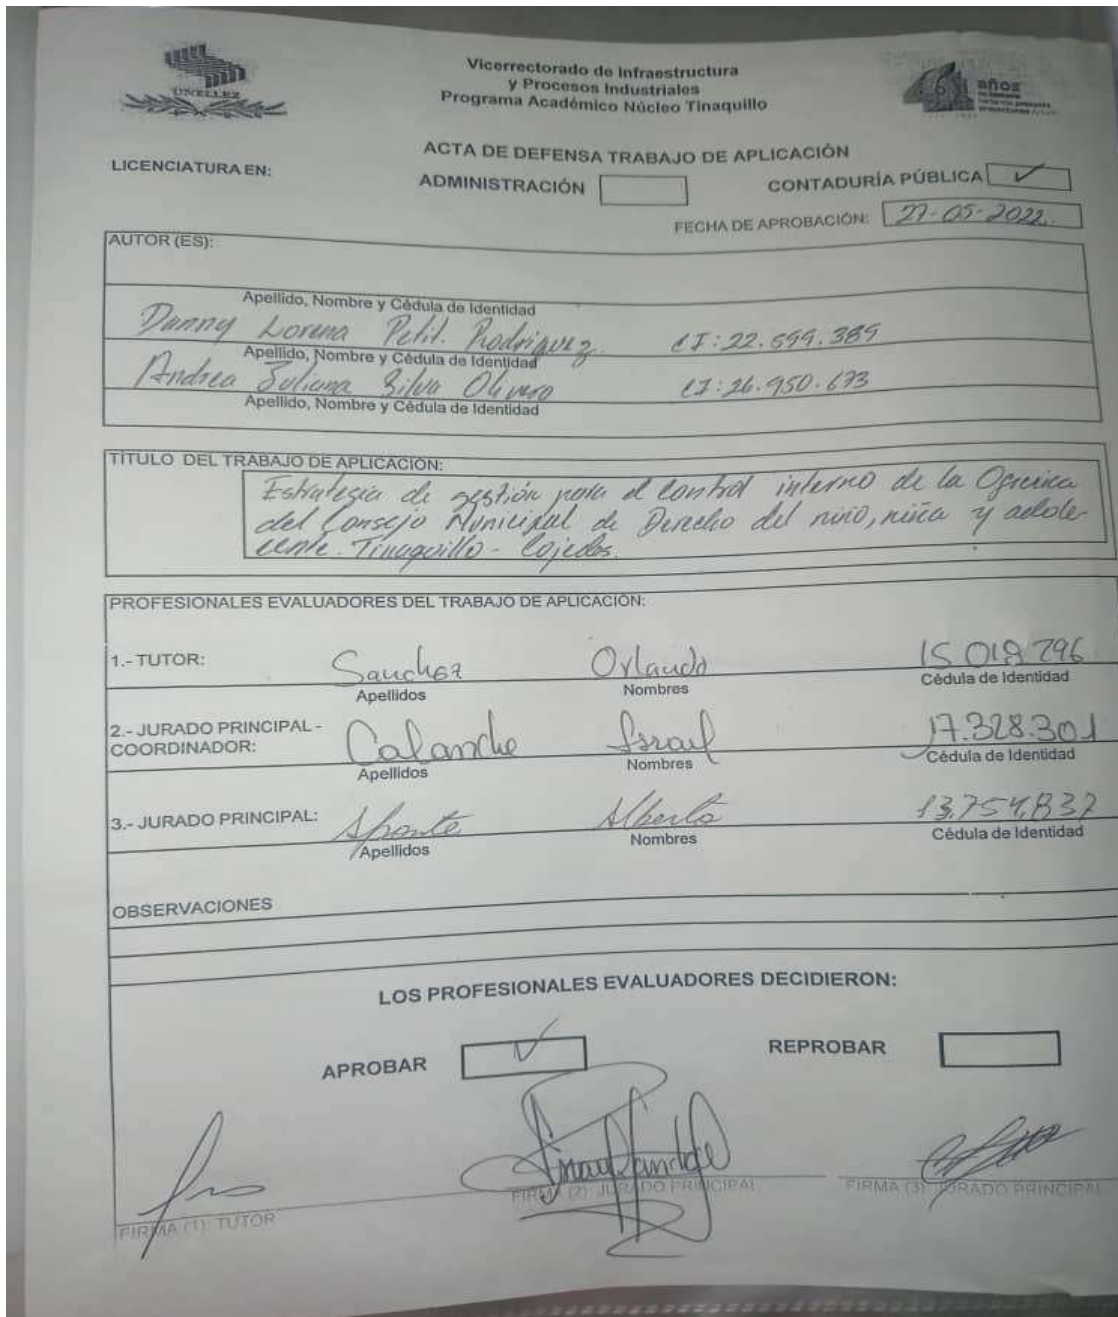 UNELLEZ
Vicerrectorado de Infraestructura
y Procesos Industriales
Programa Académico Núcleo Tinaquillo
años
ACTA DE DEFENSA TRABAJO DE APLICACIÓN
LICENCIATURA EN:
ADMINISTRACIÓN
CONTADURÍA PÚBLICA ✓
FECHA DE APROBACIÓN: 27-05-2022.
AUTOR (ES):
Apellido, Nombre y Cédula de Identidad
Danny Lorena Petit. Rodriguez. CI: 22.599.389
Apellido, Nombre y Cédula de Identidad
Andrea Juliana Silva Olivero CI: 26.950.673
Apellido, Nombre y Cédula de Identidad
TÍTULO DEL TRABAJO DE APLICACIÓN:
Estrategia de gestión para el control interno de la Oficina
del Consejo Municipal de Derecho del niño, niña y adole-
cente. Tinaquillo - Cojedes.
PROFESIONALES EVALUADORES DEL TRABAJO DE APLICACIÓN:
1.- TUTOR: Sanchez Orlando 15 018 296
Apellidos Nombres Cédula de Identidad
2.- JURADO PRINCIPAL -
COORDINADOR: Calanche Israel 17.328.301
Apellidos Nombres Cédula de Identidad
3.- JURADO PRINCIPAL: Aponte Alberto 13.754.837
Apellidos Nombres Cédula de Identidad
OBSERVACIONES
LOS PROFESIONALES EVALUADORES DECIDIERON:
APROBAR ✓ REPROBAR
FIRMA (1): TUTOR FIRMA (2): JURADO PRINCIPAL FIRMA (3): JURADO PRINCIPAL